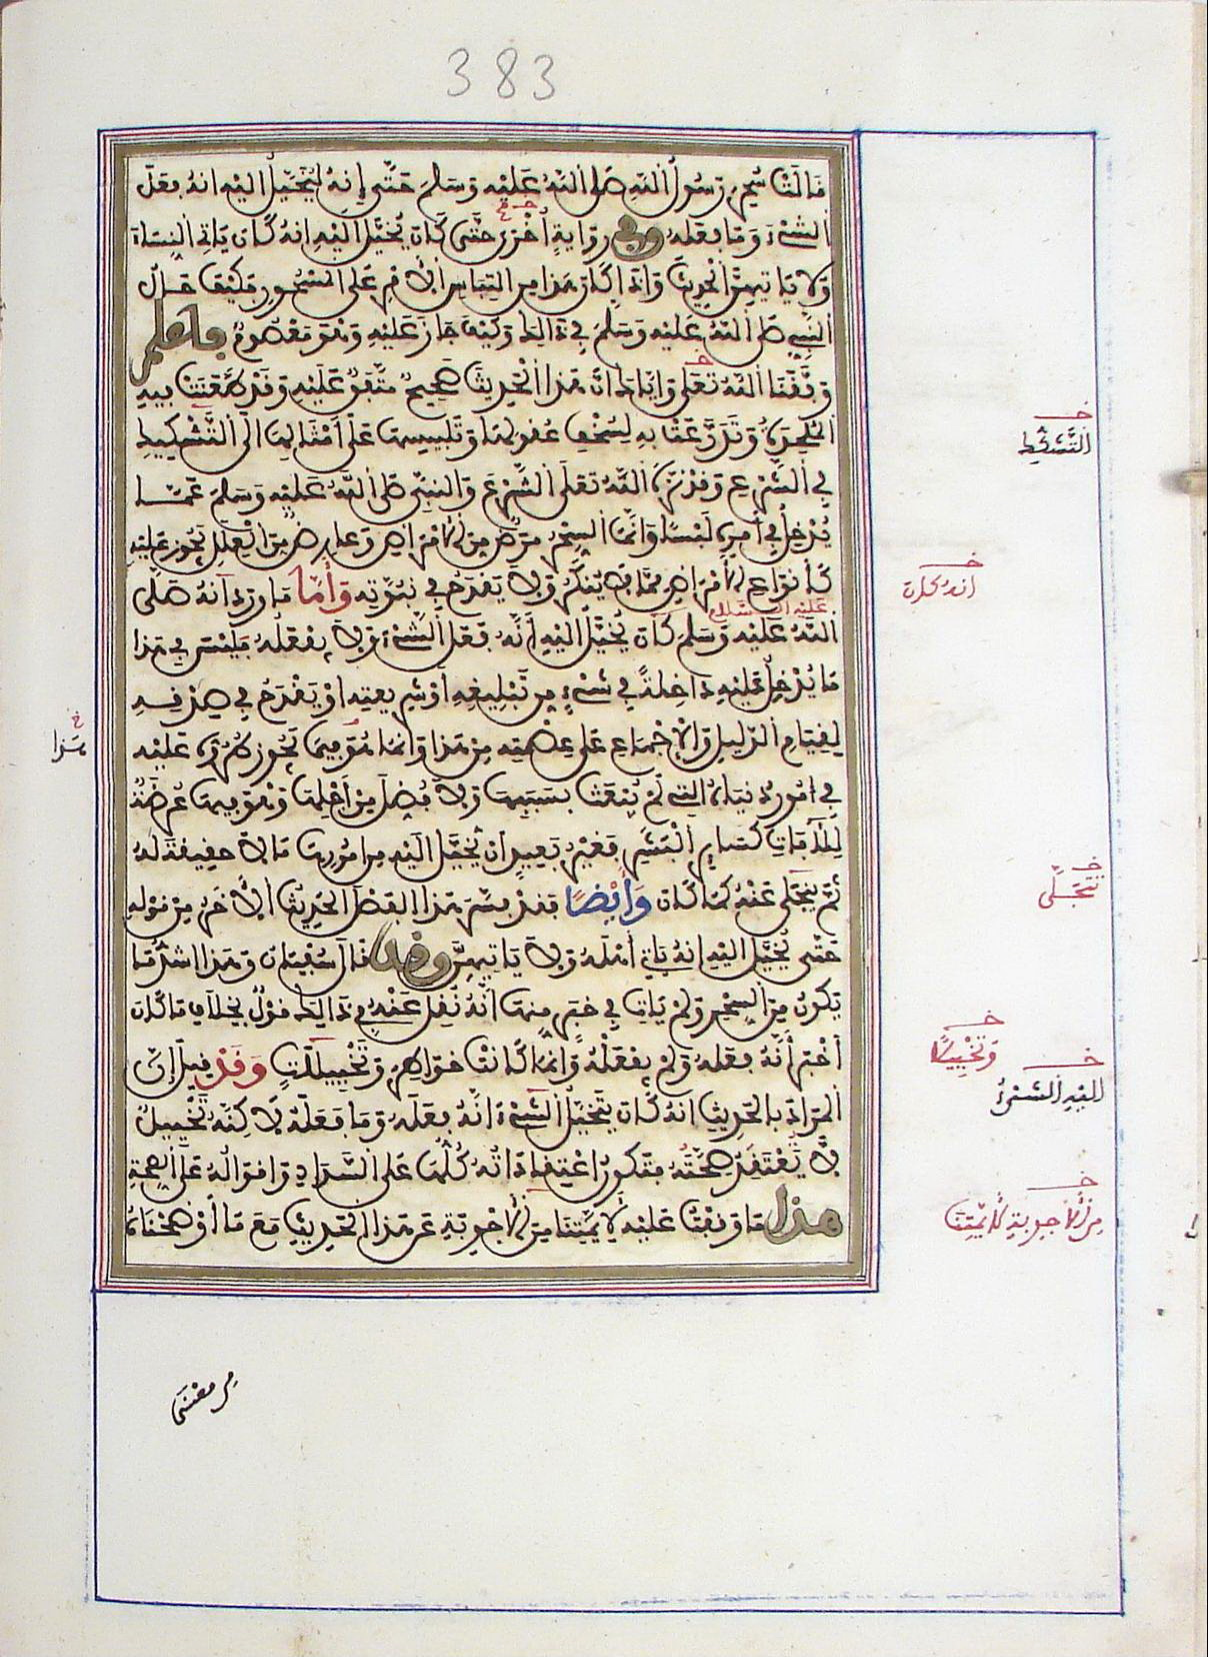 383
قالت سحر رسول الله صلى الله عليه وسلم حتى إنه ليخيل إليه أنه فعل
الشيء وما فعله وفي رواية أخرى حتى كان يخيل إليه أنه كان ياتي النساء
ولا ياتيهن الحديث وإذا كان هذا من التباس الأمر على المسحور فكيف حال
النبي صلى الله عليه وسلم في ذالك وكيف جاز عليه وهو معصوم فاعلم
وفقنا الله تعلى وإياك أن هذا الحديث صحيح متفق عليه وقد طعنت فيه
الملحدة وتدرعت به لسخف عقولها وتلبيسها على أمثالها إلى التشكيك
في الشرع وقد نزه الله تعلى الشرع والنبي صلى الله عليه وسلم عما
يدخل في أمره لبسا وإنما السحر مرض من الأمراض وعارض من العلل يجوز عليه
كأنواع الأمراض مما لا ينكر ولا يقدح في نبوته وأما ما ورد أنه صلى
عليه السلام
الله عليه وسلم كان يخيل إليه أنه فعل الشيء ولا يفعله فليس في هذا
ما يدخل عليه داخلة في شيء من تبليغه أو شريعته أو يقدح في صدقه
لقيام الدليل والإجماع على عصمته من هذا وإنما هو فيما يجوز طروه عليه
في أمور دنياه التي لم يبعث بسببها ولا فضل من أجلها وهو فيها عرضة
للآفات كساير البشر فغير بعيد أن يخيل إليه من أمورها ما لا حقيقة له
ثم ينجلى عنه كما كان وأيضا فقد فسر هذا الفصل الحديث الآخر من قوله
حتى يخيل إليه أنه ياتي أهله ولا ياتيهن وقد قال سفيان وهذا أشد ما
يكون من السحر ولم يات في خبر منها أنه نقل عنه في ذالك قول بخلاف ما كان
أخبر أنه فعله ولم يفعله وإنما كانت خواطر وتخييلات وقد قيل إن
المراد بالحديث أنه كان يتخيل الشيء أنه فعله وما فعله لاكنه تخييل
لا يعتقد صحته فتكون اعتقاداته كلها على السداد وأقواله على الصحة
هذا ما وقفت عليه لأيمتنا من الأجوبة عن هذا الحديث مع ما أوضحناه
خ
التشكك
خ
أنه كان
خ
هذا
خ
يتجلى
خ
وتخييلا
خ
إليه الشيء
خ
من الأجوبة لأيمتنا
من معنى